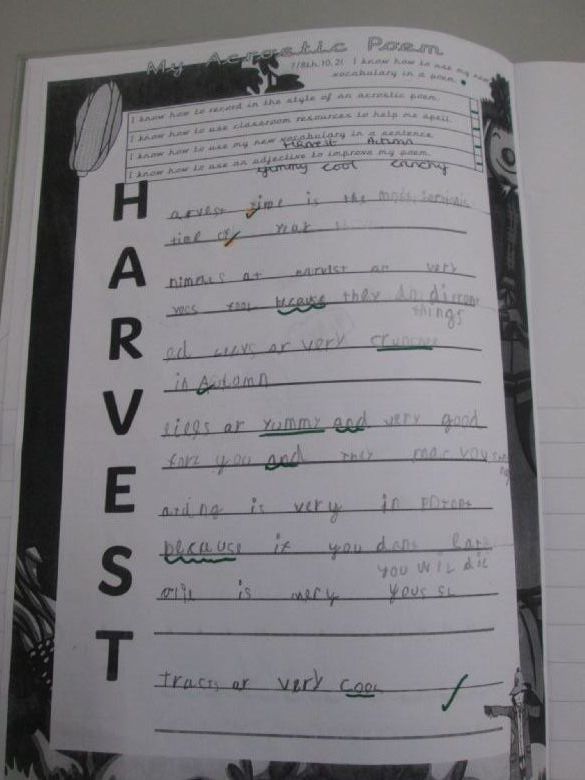 My Acrostic Poem
7/8th.10.21 I know how to use my new
vocabulary in a poem.
I know how to record in the style of an acrostic poem.
I know how to use classroom resources to help me spell.
I know how to use my new vocabulary in a sentence.
Harvest Autumn
I know how to use an adjective to improve my poem.
yummy cool crunchy
H arvest time is the most
time of year
A nimuls at harvist ar very
cool because they do diffrent
things
R ed leevs ar very crunchee
in Autamn
V eiegs ar yummy and very good
fore you and they mac you
E ating is very in portant
because if you dont
you wil die
S is very
T tracts ar very cool